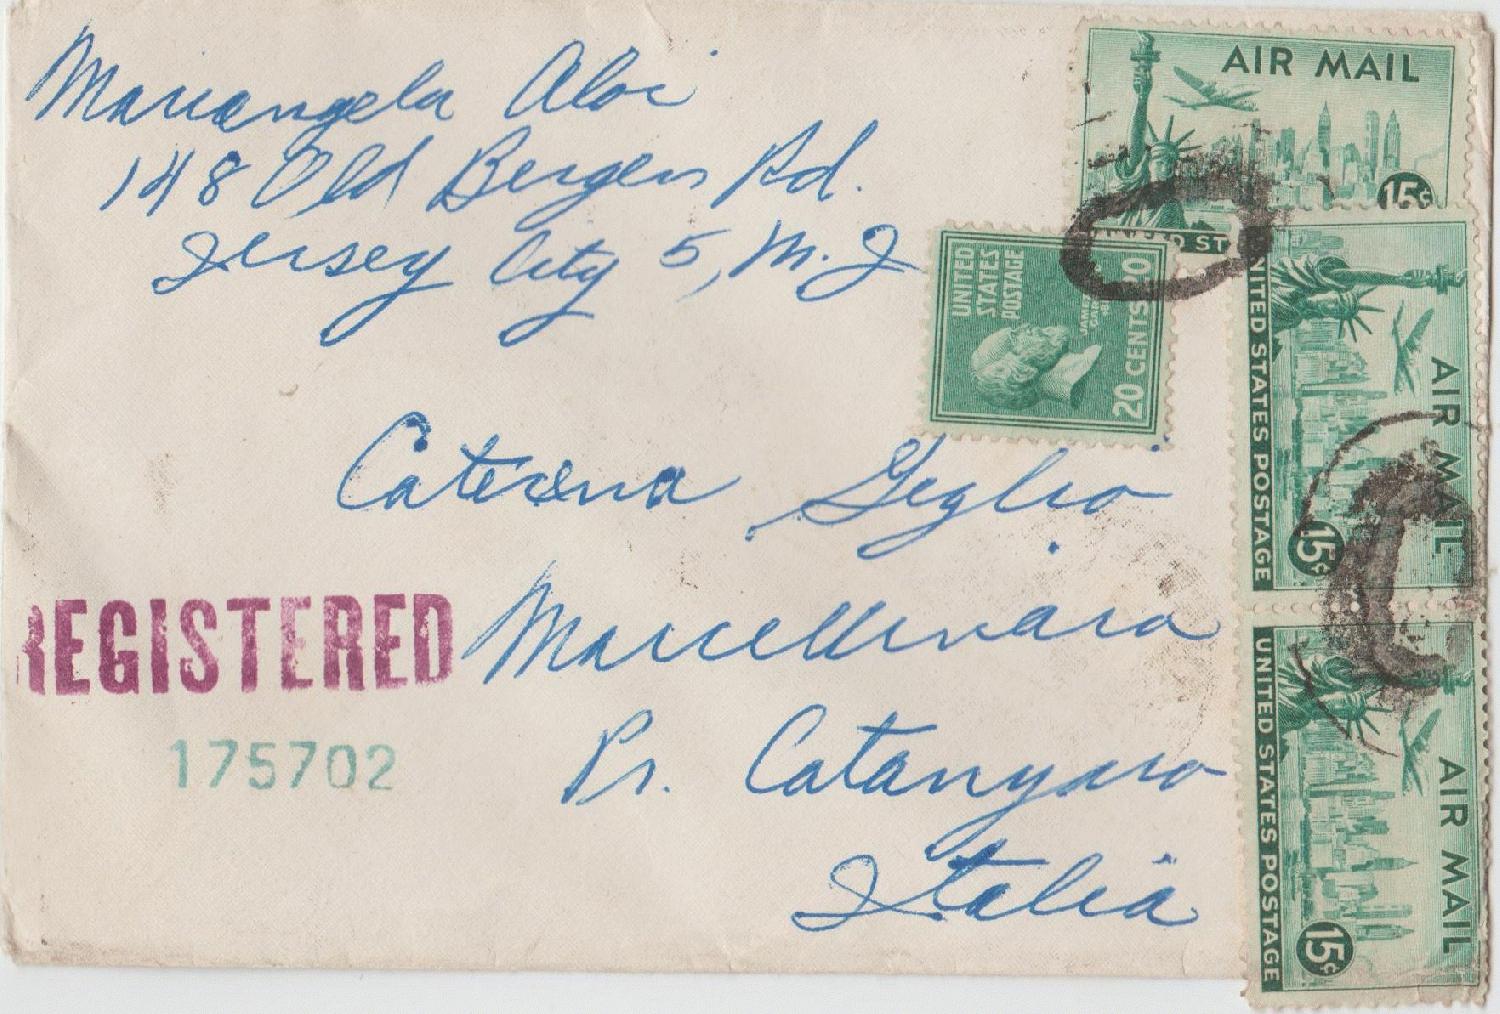 Mariangela Aloi
148 Old Bergen Rd.
Jersey City 5, N. J
Caterina Geglio
Marcellinara
Pr. Catanzaro
Italia
REGISTERED
175702
AIR MAIL
15¢
UNITED
STATES
POSTAGE
JAMES
20 CENTS 20
UNITED STATES POSTAGE
AIR MAIL
15¢
UNITED STATES POSTAGE
AIR MAIL
15¢